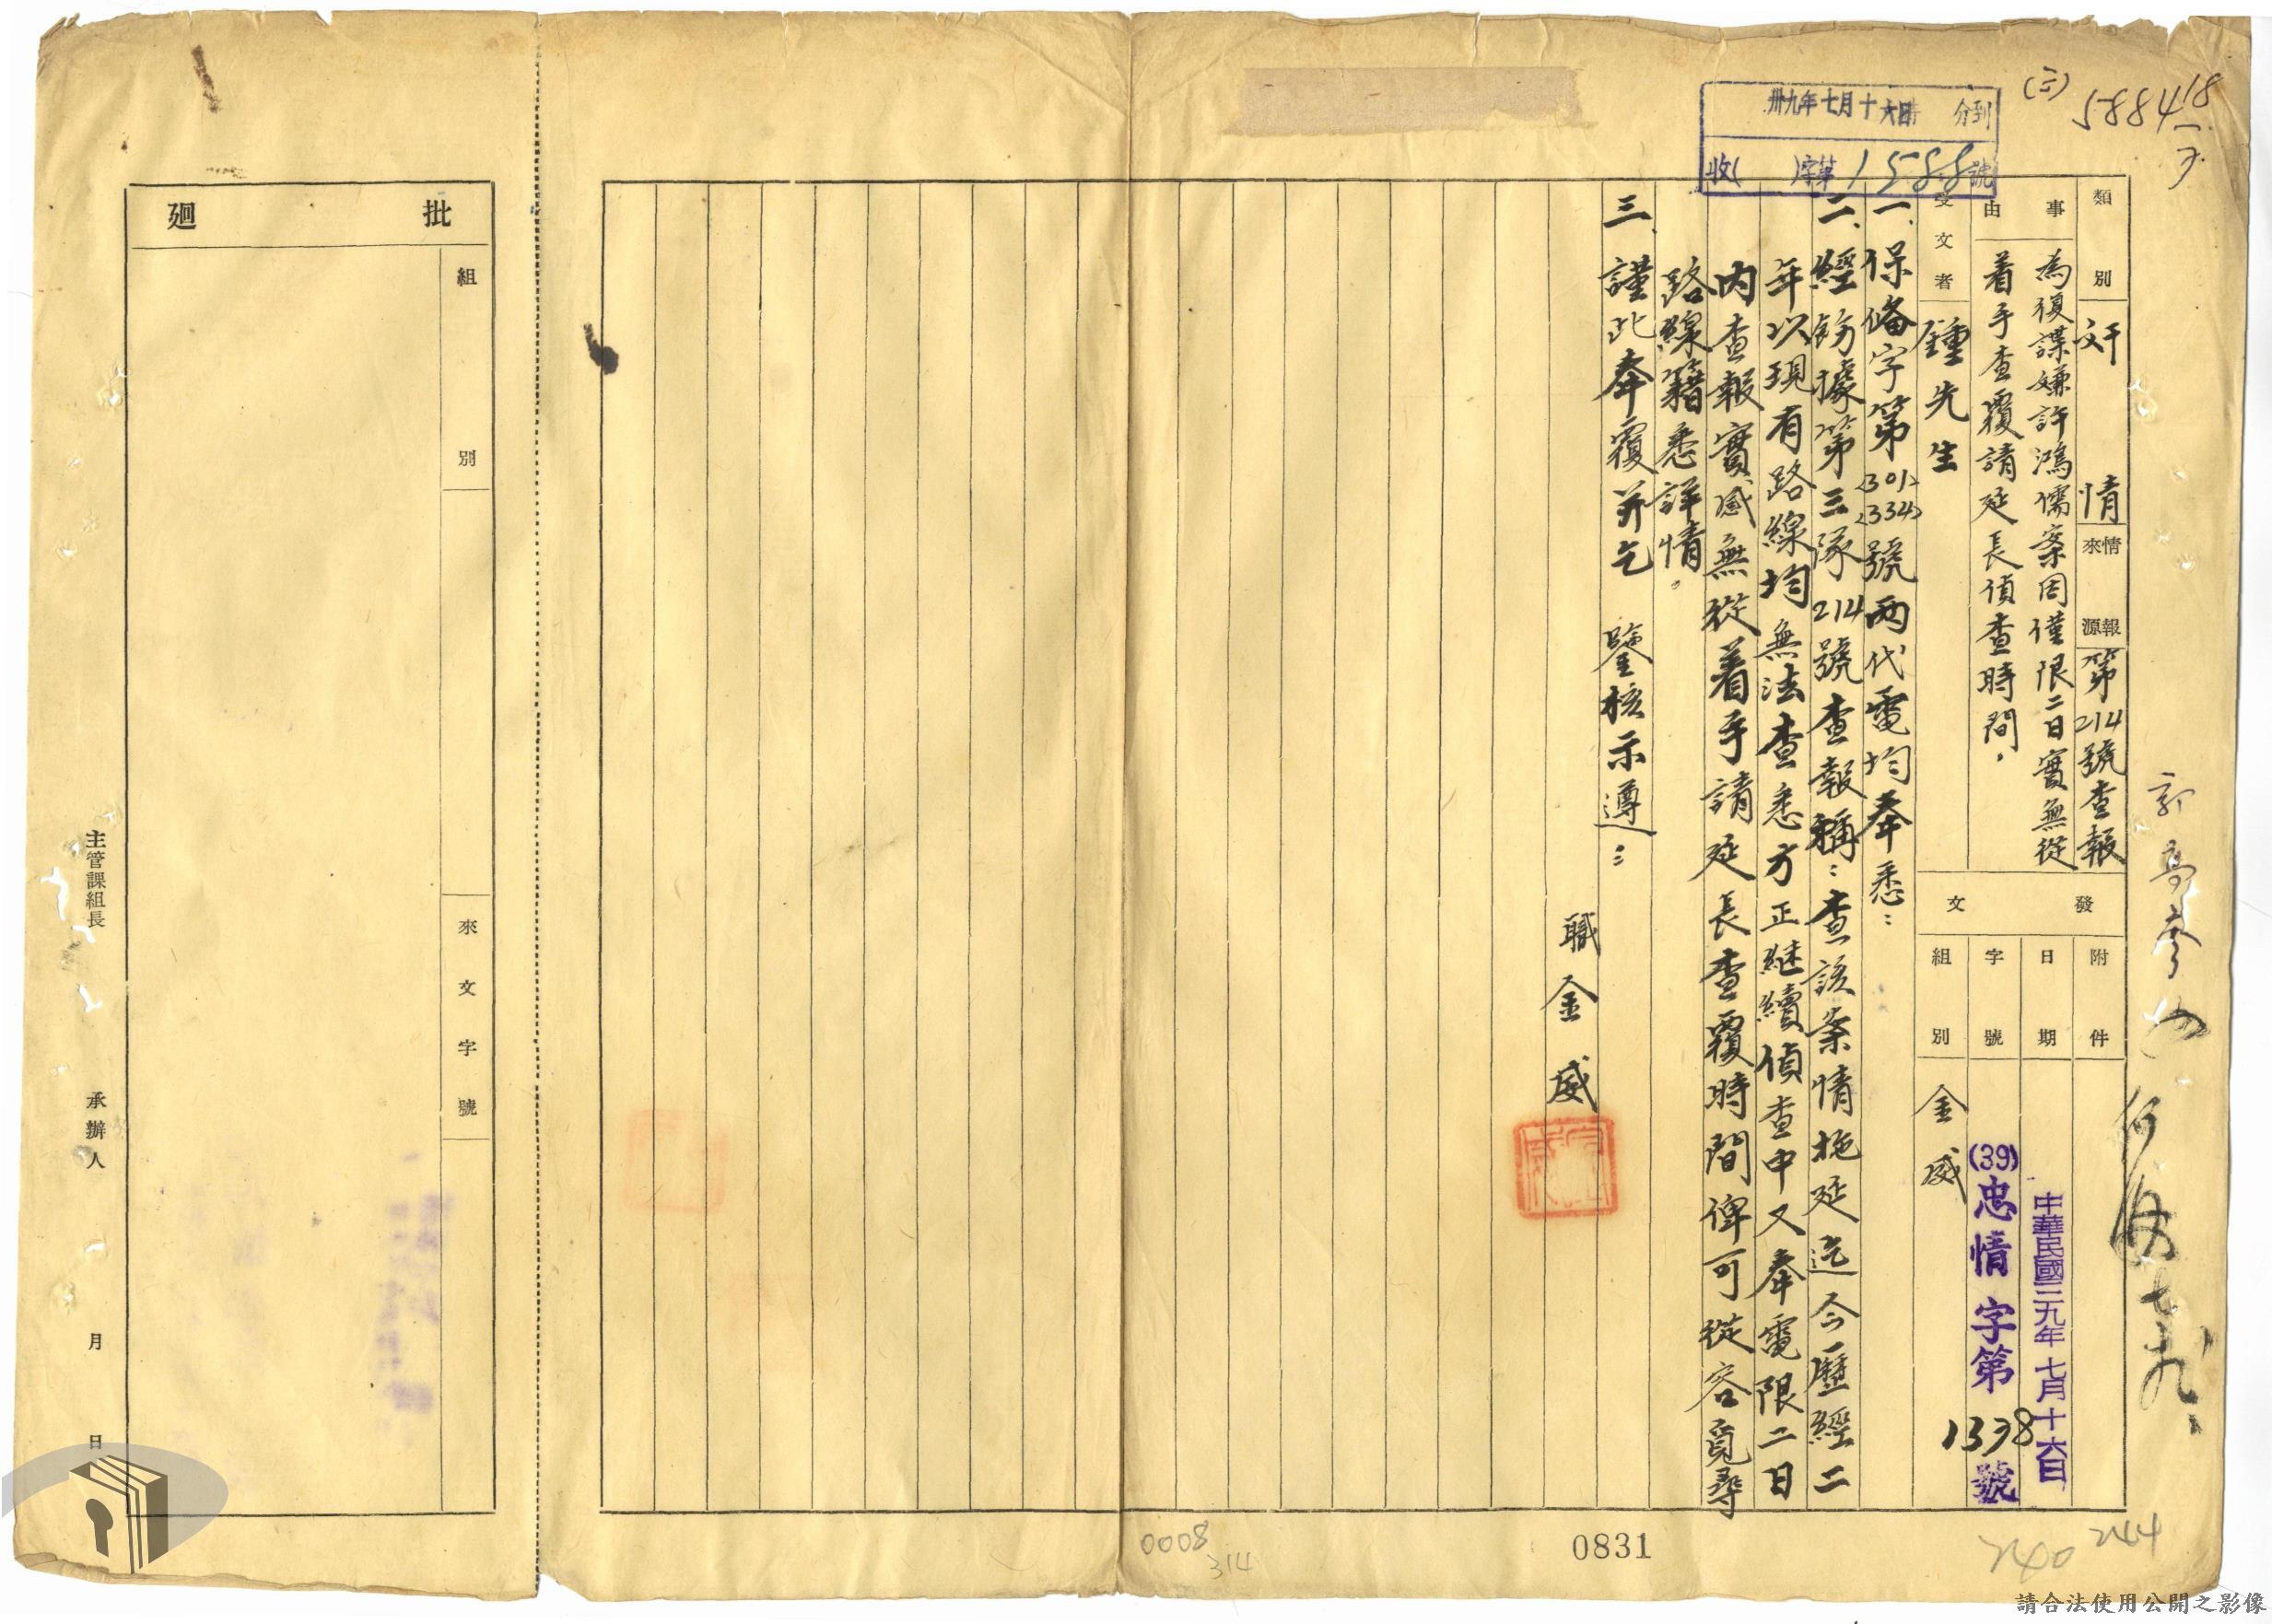 (三)
5884
18/7
卅九年七月十六日 時 分到
收( )字第1588號
類別
奸情
情報來源
第214號查報
事由
為復諜嫌許鴻儒案因僅限二日實無從
着手查覆請延長偵查時間，
受文者
鍾先生
發文
附件
日期
中華民國三九年七月十六日
字號
(39)忠情字第1338號
組別
金威
一、保偹字第〈301〉〈334〉號兩代電均奉悉：
二、經飭據第三隊214號查報稱：查該案情拖延迄今歷經二
年以現有路線均無法查悉方正継續偵查中又奉電限二日
內查報實感無從着手請延長查覆時間俾可從容覓尋
路線籍悉詳情。
三、謹此奉覆并乞 鑒核示遵：
職 金威
批廻
組別
來文字號
主管課組長
承辦人
月
日
0008
314
0831
240
244
請合法使用公開之影像